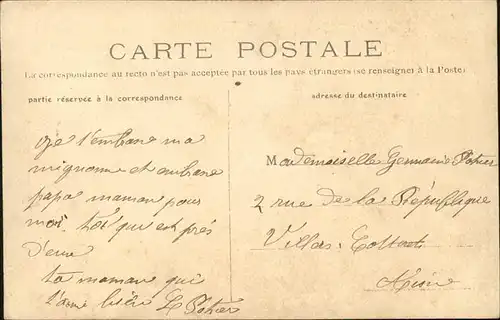 CARTE POSTALE
La correspondance au recto n'est pas acceptée par tous les pays étrangers (se renseigner à la Poste)
partie réservée à la correspondance
adresse du destinataire
Je t'embrasse ma
mignonne et embrasse
papa maman pour
moi toi qui est près
d'eux
ta maman qui
t'aime bien
Mademoiselle Germaine
2 rue de la République
Villers Cotterets
Aisne